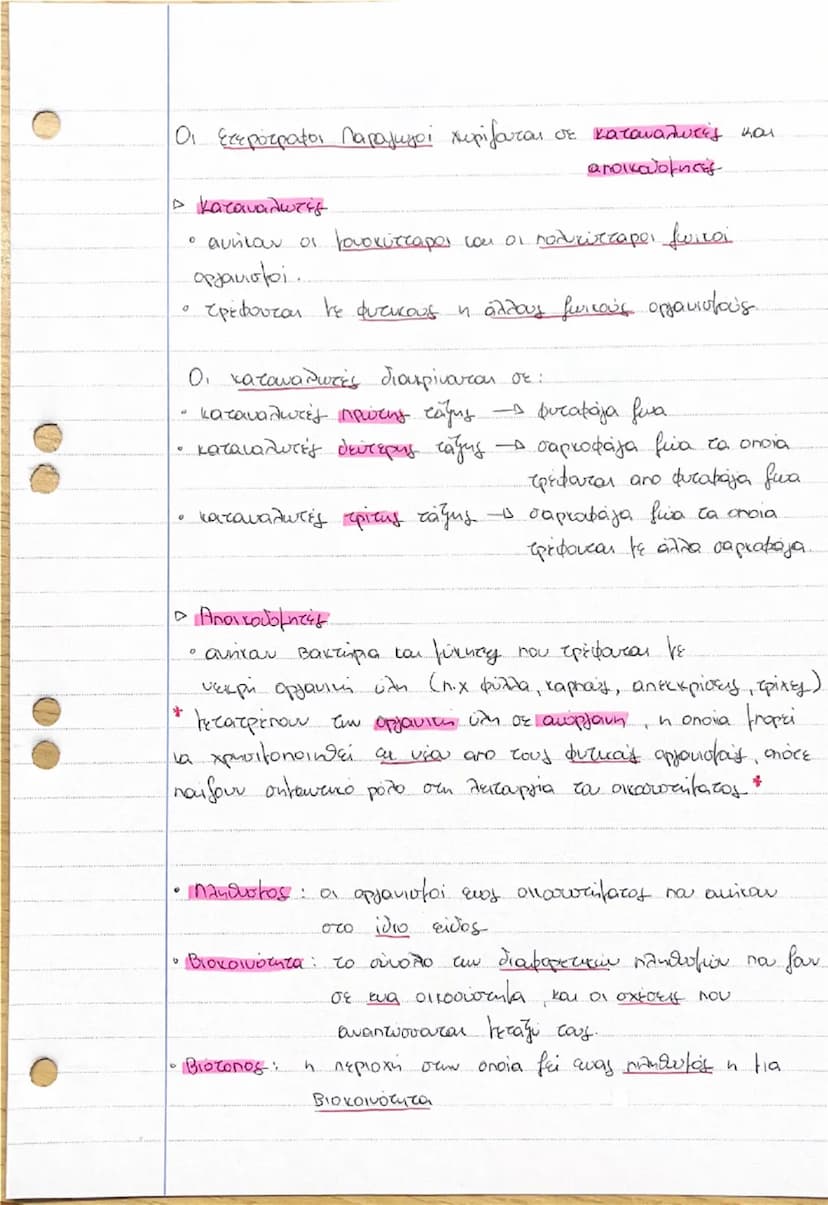 Οι ετερότροφοι Παραγωγοί χωρίζονται σε καταναλωτές και
αποικοδομητές
▷ Καταναλωτές
• ανήκουν οι μονοκύτταροι και οι πολυκύτταροι ζωικοί
οργανισμοί.
• τρέφονται με φυτικούς ή άλλους ζωικούς οργανισμούς
Οι καταναλωτές διακρίνονται σε:
• καταναλωτές πρώτης τάξης → φυτοφάγα ζωα
• καταναλωτές δεύτερης τάξης → σαρκοφάγα ζώα τα οποία
τρέφονται απο φυτοφάγα ζωα
• καταναλωτές τρίτης τάξης → σαρκοφάγα ζώα τα οποία
τρέφονται με άλλα σαρκοφάγα.
▷ Αποικοδομητές
• ανήκουν βακτήρια και μύκητες που τρέφονται με
νεκρή οργανική ύλη (π.χ φύλλα, καρπούς, απεκκρίσεις, τρίχες)
* μετατρέπουν την οργανική ύλη σε ανόργανη, η οποία μπορεί
να χρησιμοποιηθεί εκ νέου απο τους φυτικούς οργανισμούς, οπότε
παίζουν σημαντικό ρόλο στη λειτουργία του οικοσυστήματος *
• Πληθυσμος: οι οργανισμοί ενος οικοσυστήματος που ανήκουν
στο ίδιο είδος
• Βιοκοινότητα: το σύνολο των διαφορετικών πληθυσμών που ζουν
σε ενα οικοσύστημα, και οι σχέσεις που
αναπτύσσονται μεταξύ τους.
• Βιότοπος: η περιοχή στην οποία ζει ενας πληθυσμός η μια
Βιοκοινότητα